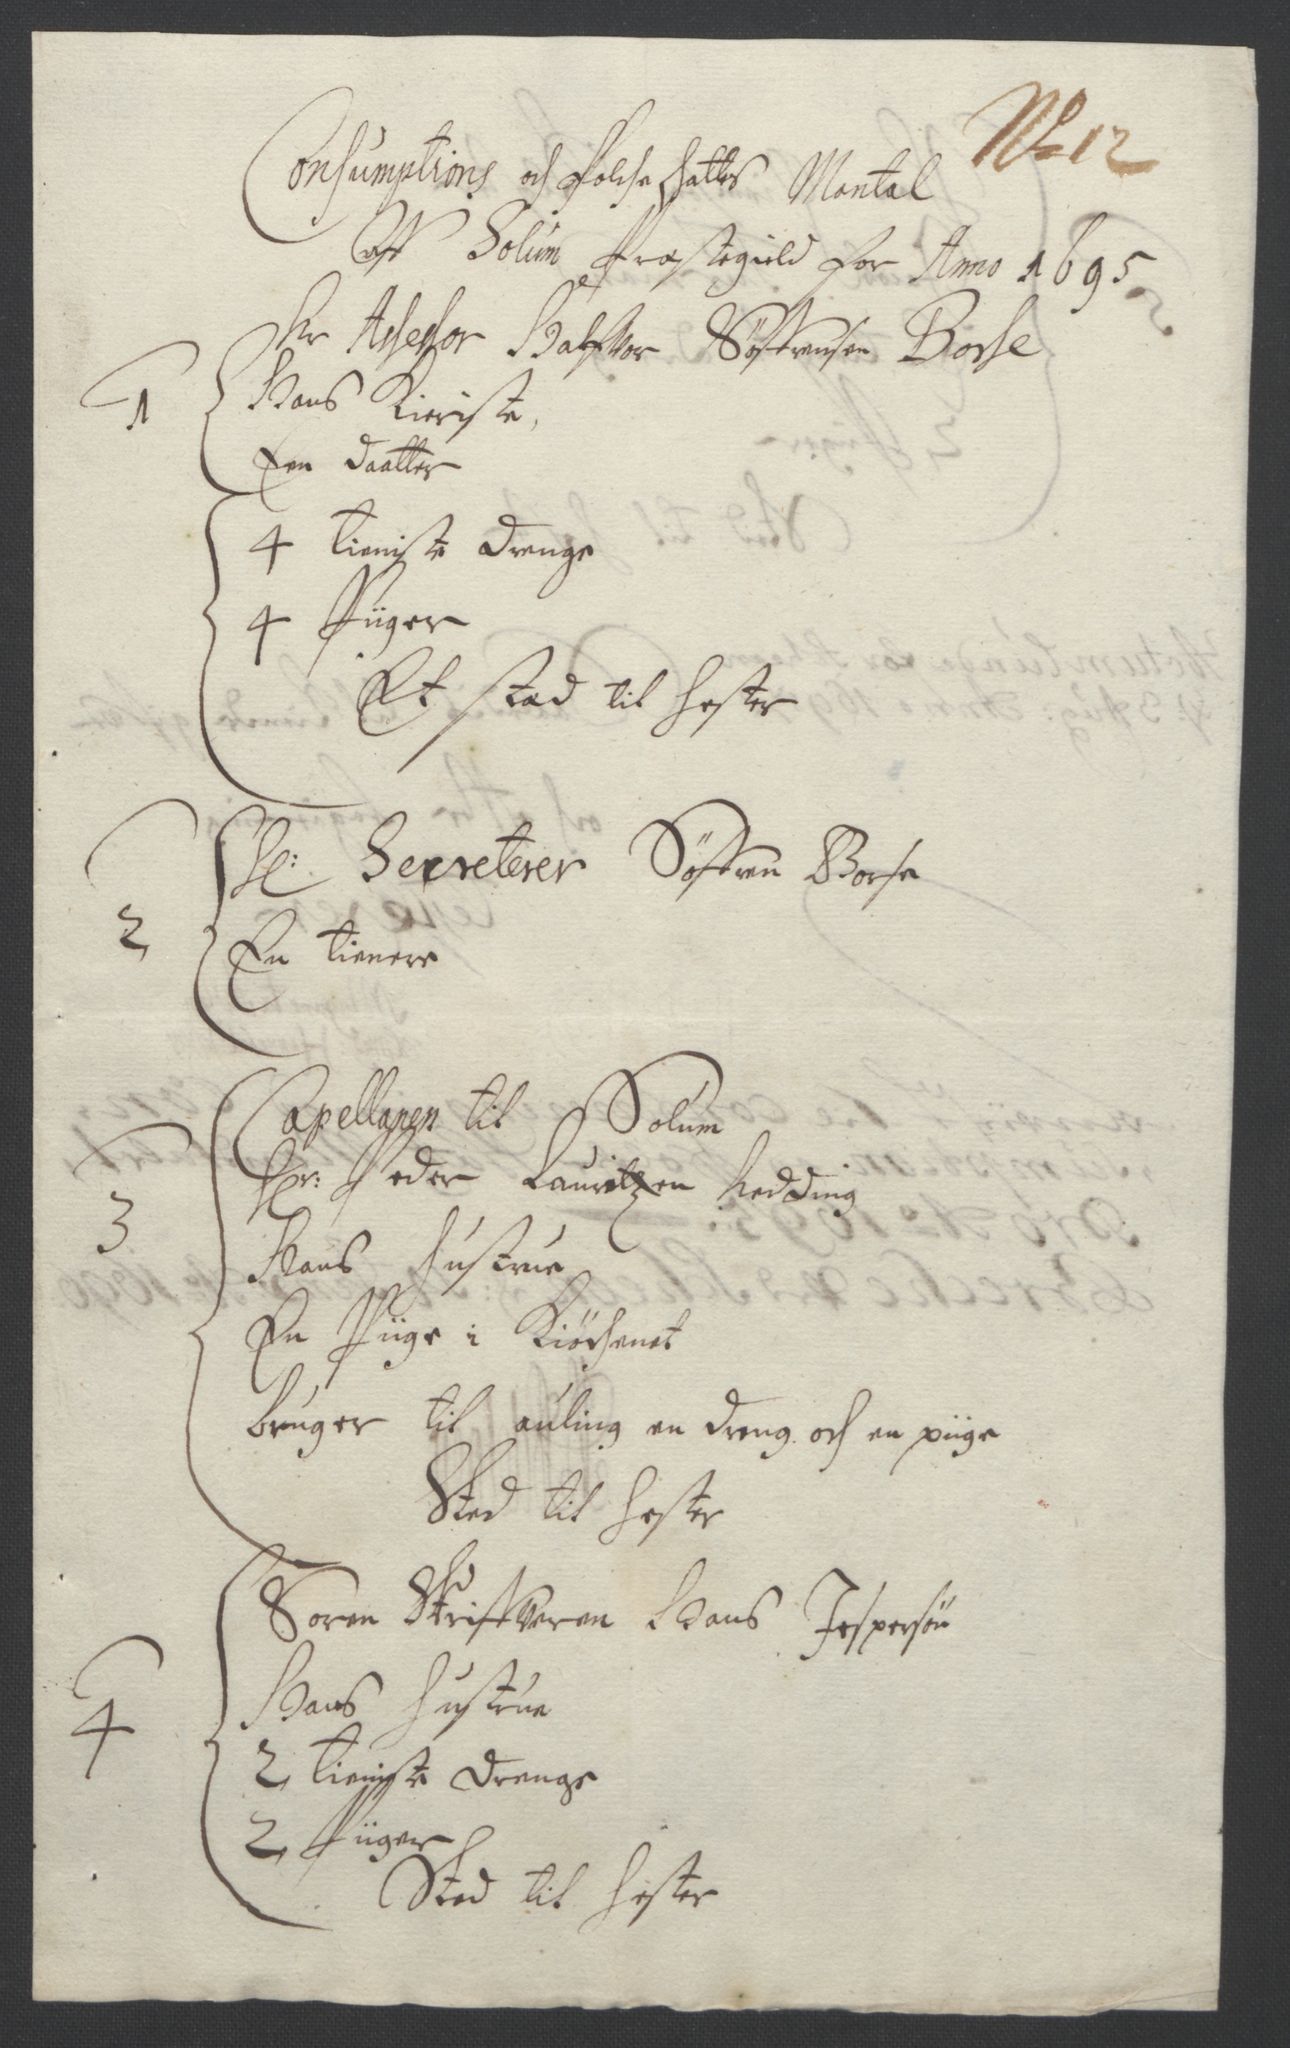 No 12
Consumptions och Folche Schattes Mantal
Aff Solum Præstegield for Anno 1695
1 Hr Assessor Halffvor Søffrensen Borse
Hans Kieriste,
Een daatter
4 tieniste drenge
4 Piiger
Et stad til hester
2 Hr: Secreterer Søffren Borse
En tienere
3 Capellanen til Solum
Hr: Peder Lauritzen hedding
Hans hustrue
En Piige i Kiøchenet
bruger til auling en dreng och en piige
Stad til hester
4 Soren Skriffveren Hans Jespersøn
Hans hustrue
2 tieniste drenge
2 Piiger
Stad til hester